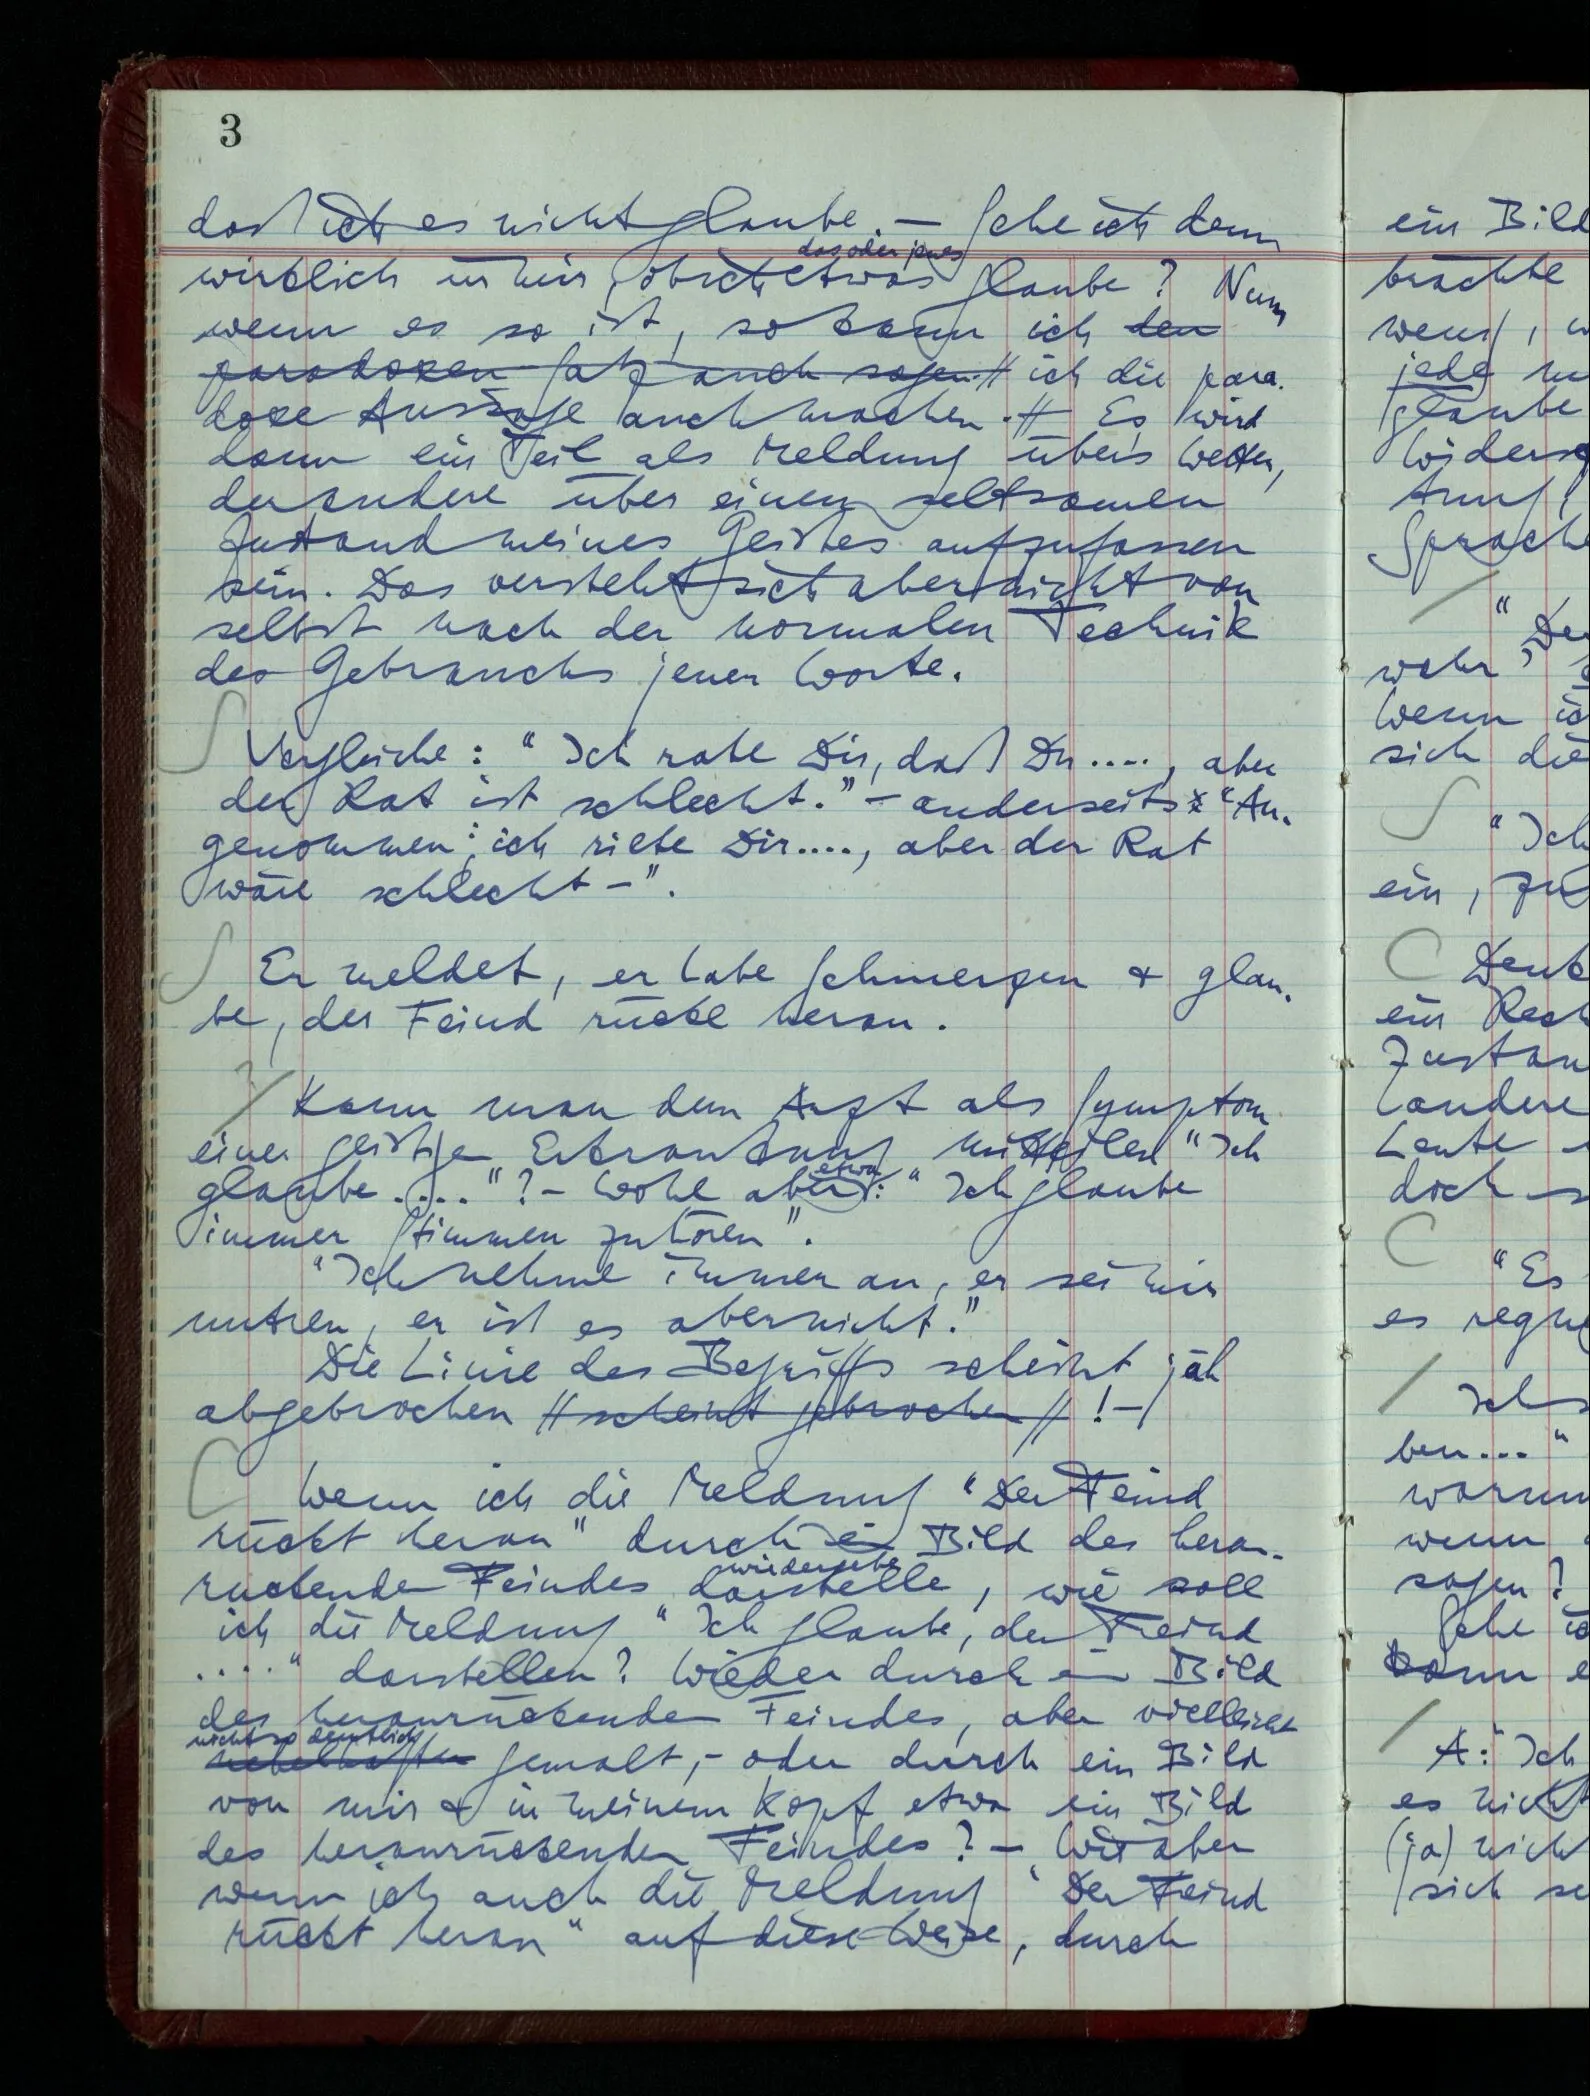 3
daß ich es nicht glaube. – Sehe ich denn
das oder jenes
wirklich in mir, ob ich etwas glaube? Nun
wenn es so ist, so kann ich den
paradoxen Satz auch sagen // ich die para-
doxe Aussage auch machen. // Es wird
dann ein Teil als Meldung über's Wetter,
der andere über einen seltsamen
Zustand meines Geistes aufzufassen
sein. Das versteht sich aber nicht von
selbst nach der normalen Technik
des Gebrauchs jener Worte.
∫ Vergleiche: "Ich rate Dir, daß Du ...., aber
der Rat ist schlecht." – anderseits: "An-
genommen: ich riete Dir...., aber der Rat
wäre schlecht –".
∫ Er meldet, er habe Schmerzen & glau-
be, der Feind rücke heran.
?/ Kann man dem Arzt als Symptom
einer geistigen Erkrankung mitteilen "Ich
etwa
glaube ...."? – Wohl aber: "Ich glaube
immer Stimmen zu hören".
"Ich nehme immer an, er sei mir
untreu, er ist es aber nicht."
Die Linie des Begriffs scheint jäh
abgebrochen // scheint gebrochen // ! –
C Wenn ich die Meldung "Der Feind
rückt heran" durch ein Bild des heran-
wiedergebe
rückenden Feindes darstelle, wie soll
ich die Meldung "Ich glaube, der Feind
...." darstellen? Wieder durch ein Bild
des heranrückenden Feindes, aber vielleicht
nicht so deutlich
nebelhafter gemalt, – oder durch ein Bild
von mir & in meinem Kopf etwa ein Bild
des heranrückenden Feindes? – Wie aber
wenn ich auch die Meldung "Der Feind
rückt heran" auf diese Weise, durch
ein Bild
brächte
wenn,
jede
glaube
Sprache
/
"De
wahr"
Wenn ic
sich die
∫ "Ich
ein, zu
C Denk
ein Rech
Zustan
andere
Leute
doch
C "Es
es regn
/ Ich
ben...."
warum
wenn
sagen?
Sehe ic
kann e
/ A: "Ich
es nicht
(ja) nich
sich se